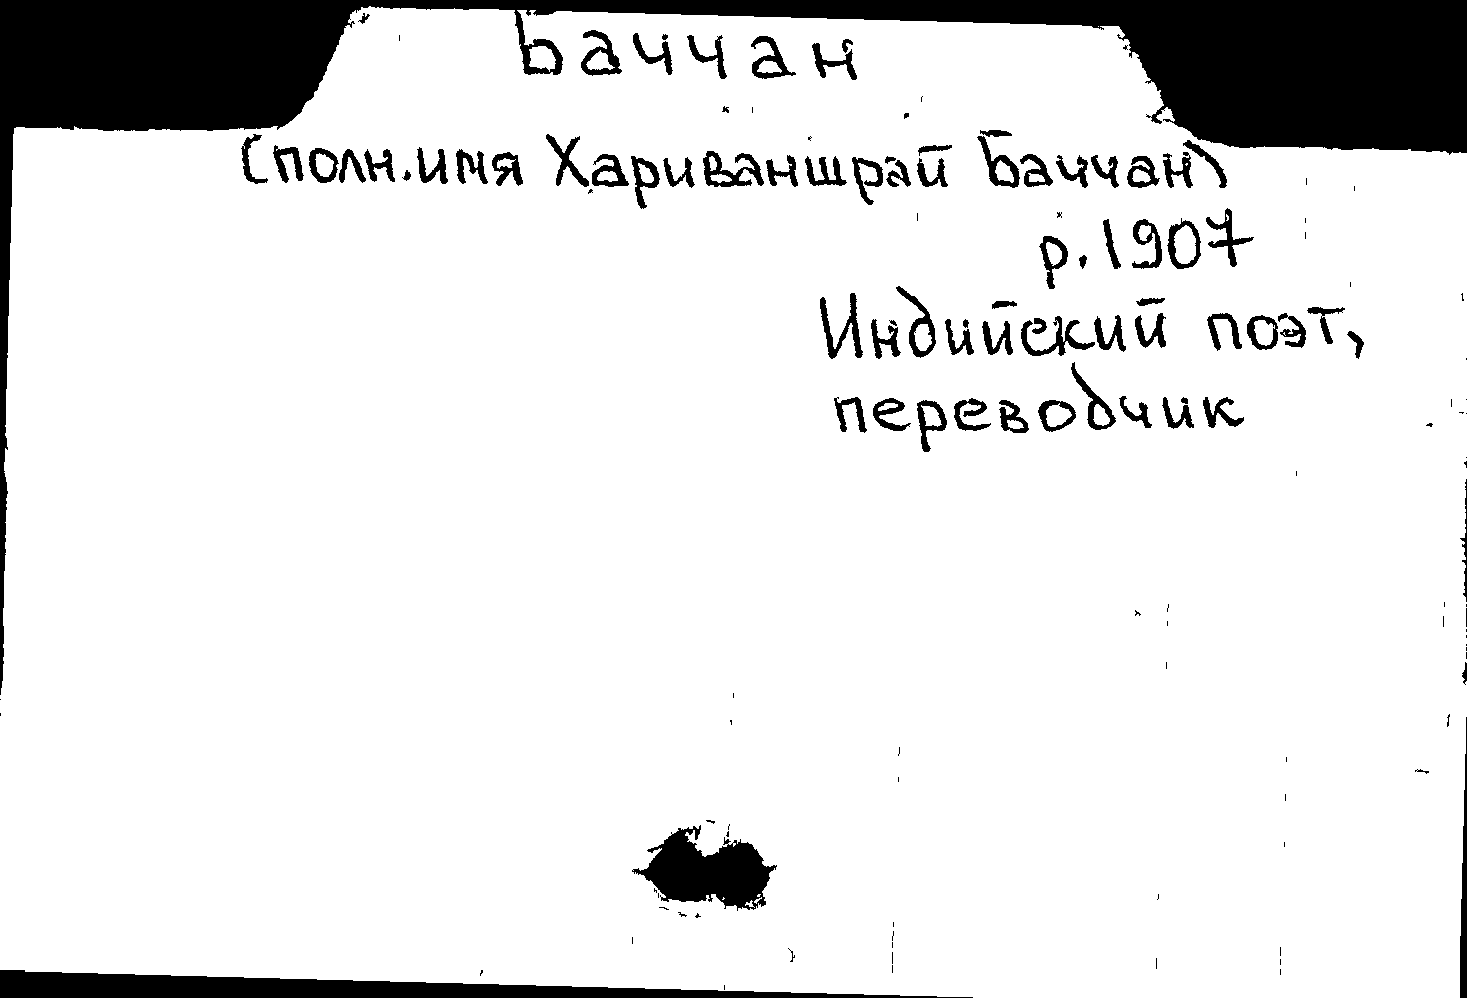 Баччан
(полн.имя Хариваншрай Баччан)
р.1907
Индийский поэт,
переводчик